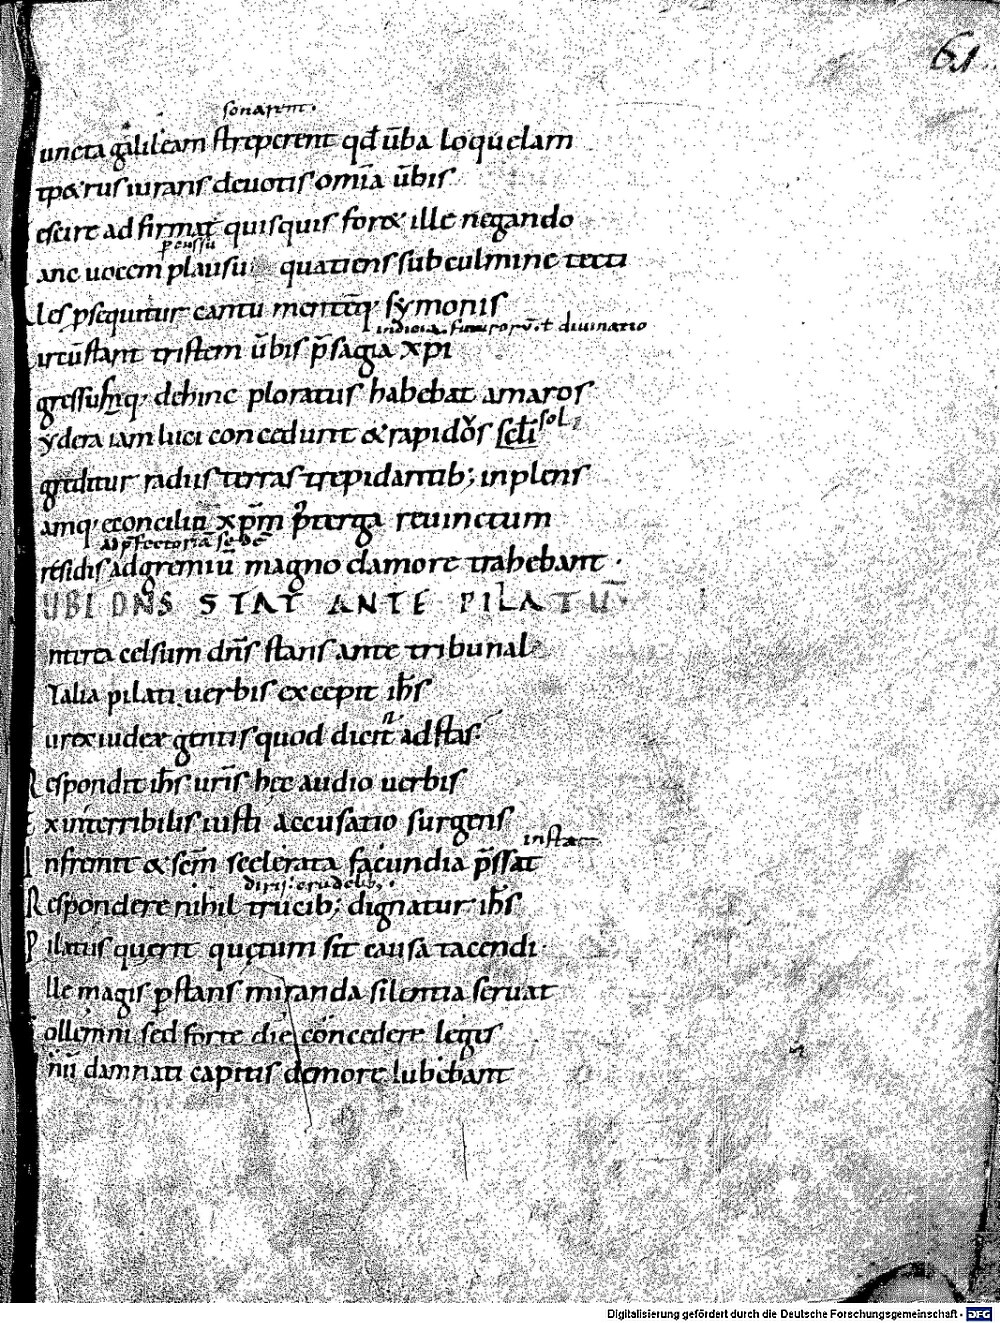 61
sonarent.
uncta galileam streperent qđ ūba loquelam
&p&rus iurans deuotis om̄ia ūbis
escire adfirmat quisquis for& ille negando
pcussu
anc uocem plausu quatiens sub culmine tecti
les psequitur cantu menteq; symonis
indicia. futuroru. t diuinatio
irtū stant tristem ūbis p̄sagia xpi
gressusq; dehinc ploratus habebat amaros
ydera iam luci concedunt & rapidos
sol
greditur radiis terras trepidantib; inplens
amq; econciliū xp̄m p̄terga reuinctum
Ad p̄fectoriā sedē
residis ad gremiū magno clamore trahebant.
UBI DN̄S STAT ANTE PILATŪ.
nterea celsum dn̄s stans ante tribunal
Talia pilati uerbis excepit ih̄s
ur&x iude& gentis quod dicit adstas.
Respondit ih̄s ur̄is hec audio uerbis
Exin terribilis iusti accusatio surgens
instat
Infremit & sēm scelerata facundia p̄ssat
diris. crudelib;.
Respondere nihil trucib; dignatur ih̄s
Pilatus querit quetum sit causa tacendi.
lle magis pstans miranda silentia seruat
ollemni sed forte die concedere legis
nū damnati capitis demore lubebant
Digitalisierung gefördert durch die Deutsche Forschungsgemeinschaft - DFG